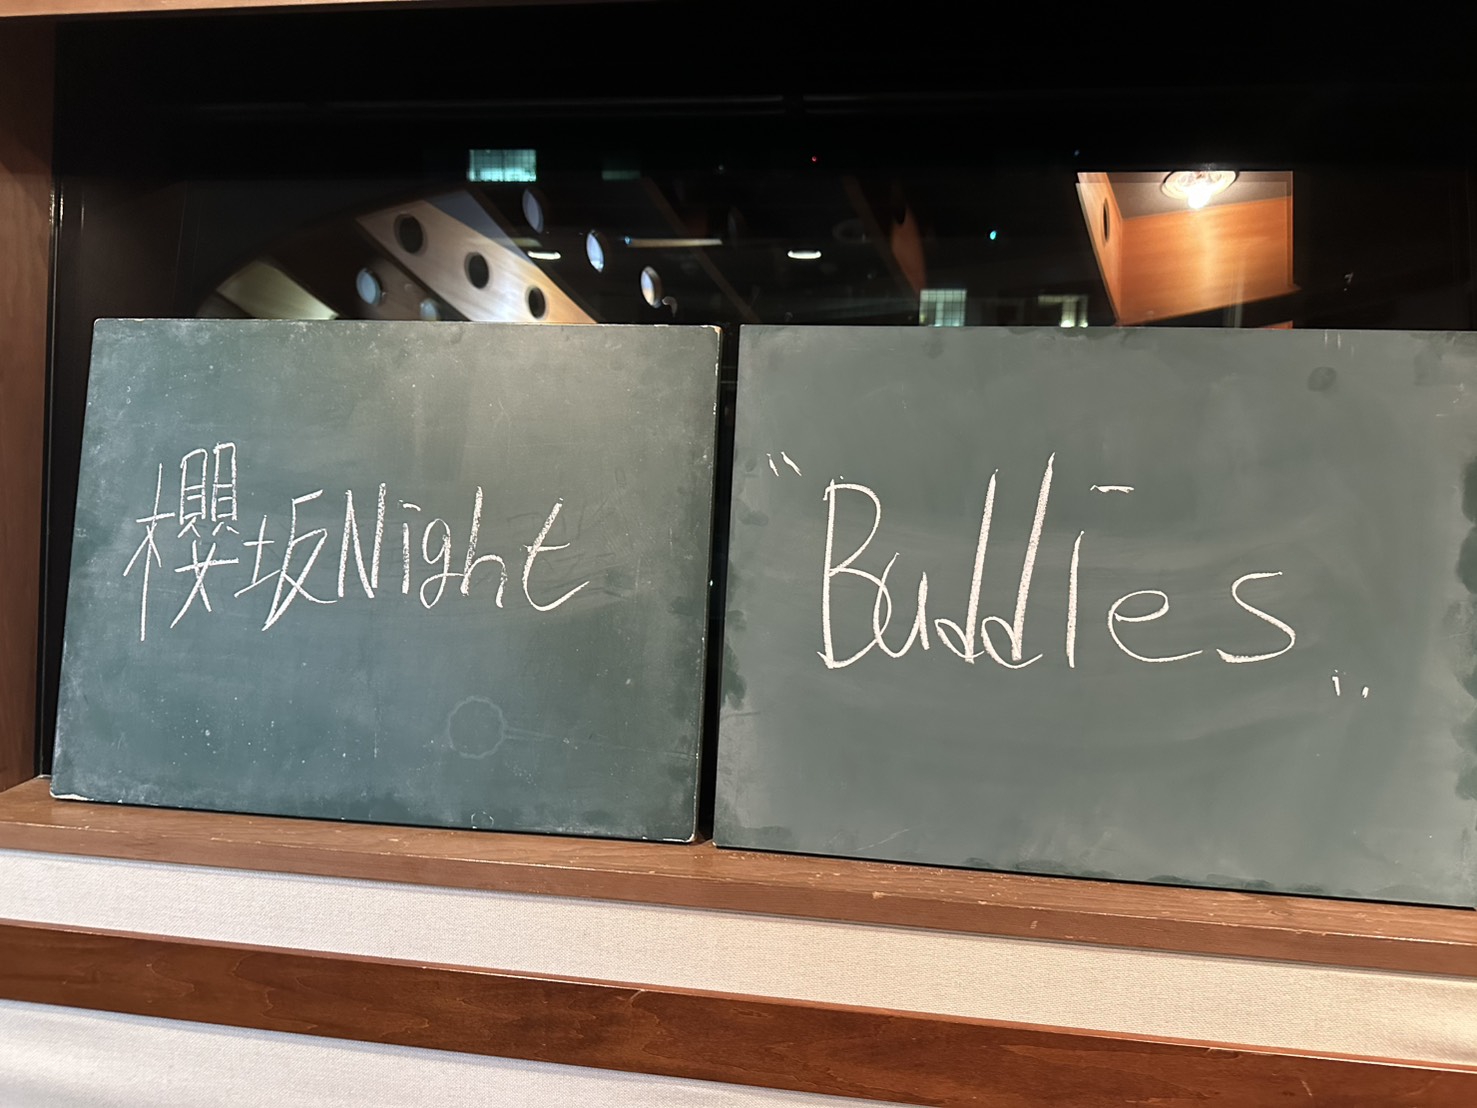 櫻坂Night
"Buddies"